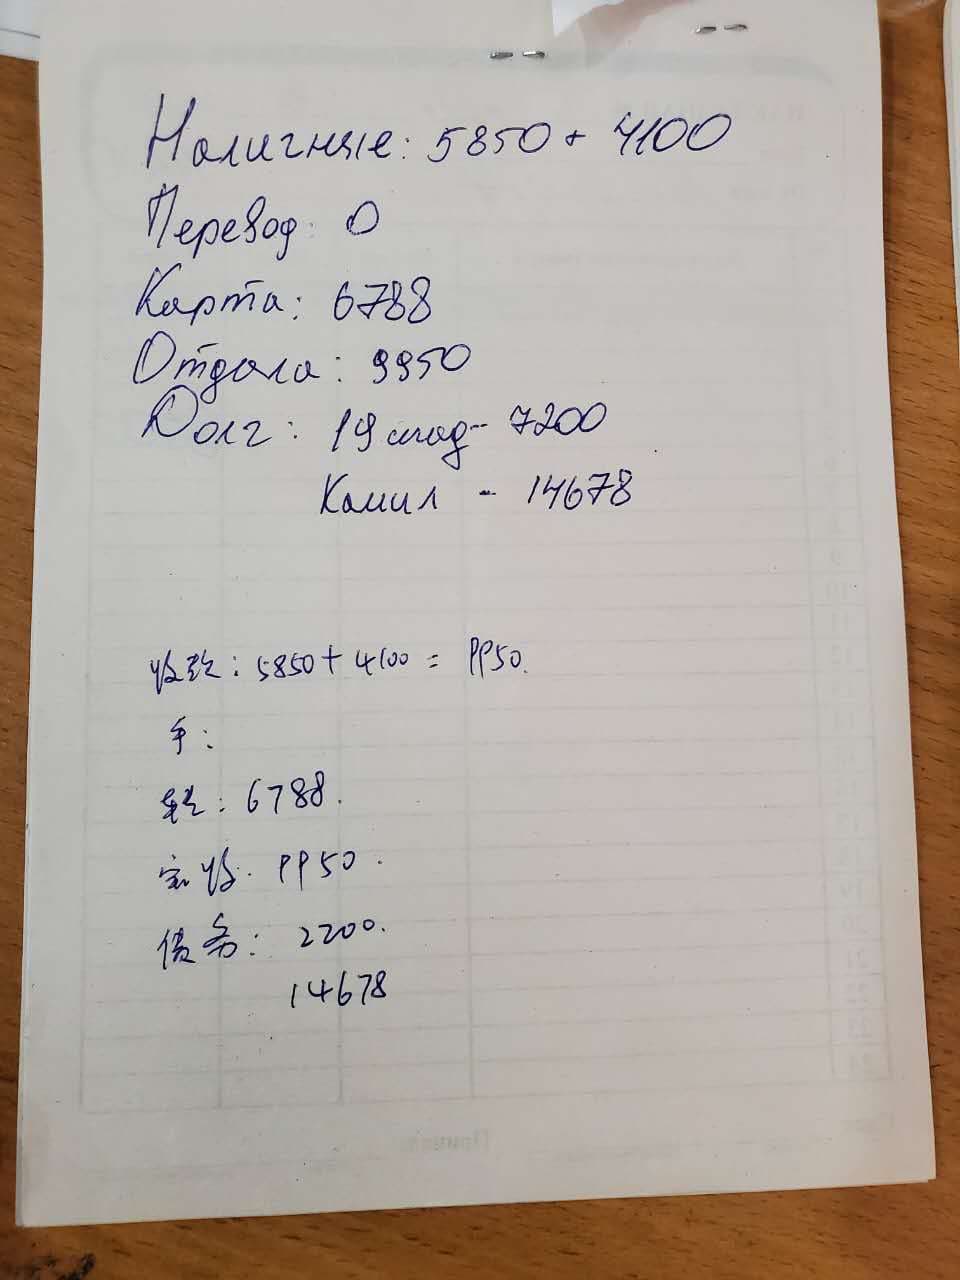 Наличные: 5850 + 4100
Перевод: 0
Карта: 6788
Отдала: 9950
Долг: 19 склад - 7200
Камил - 14678
收款: 5850 + 4100 = 9950.
手:
6788.
实收. 9950.
债务: 2200.
14678